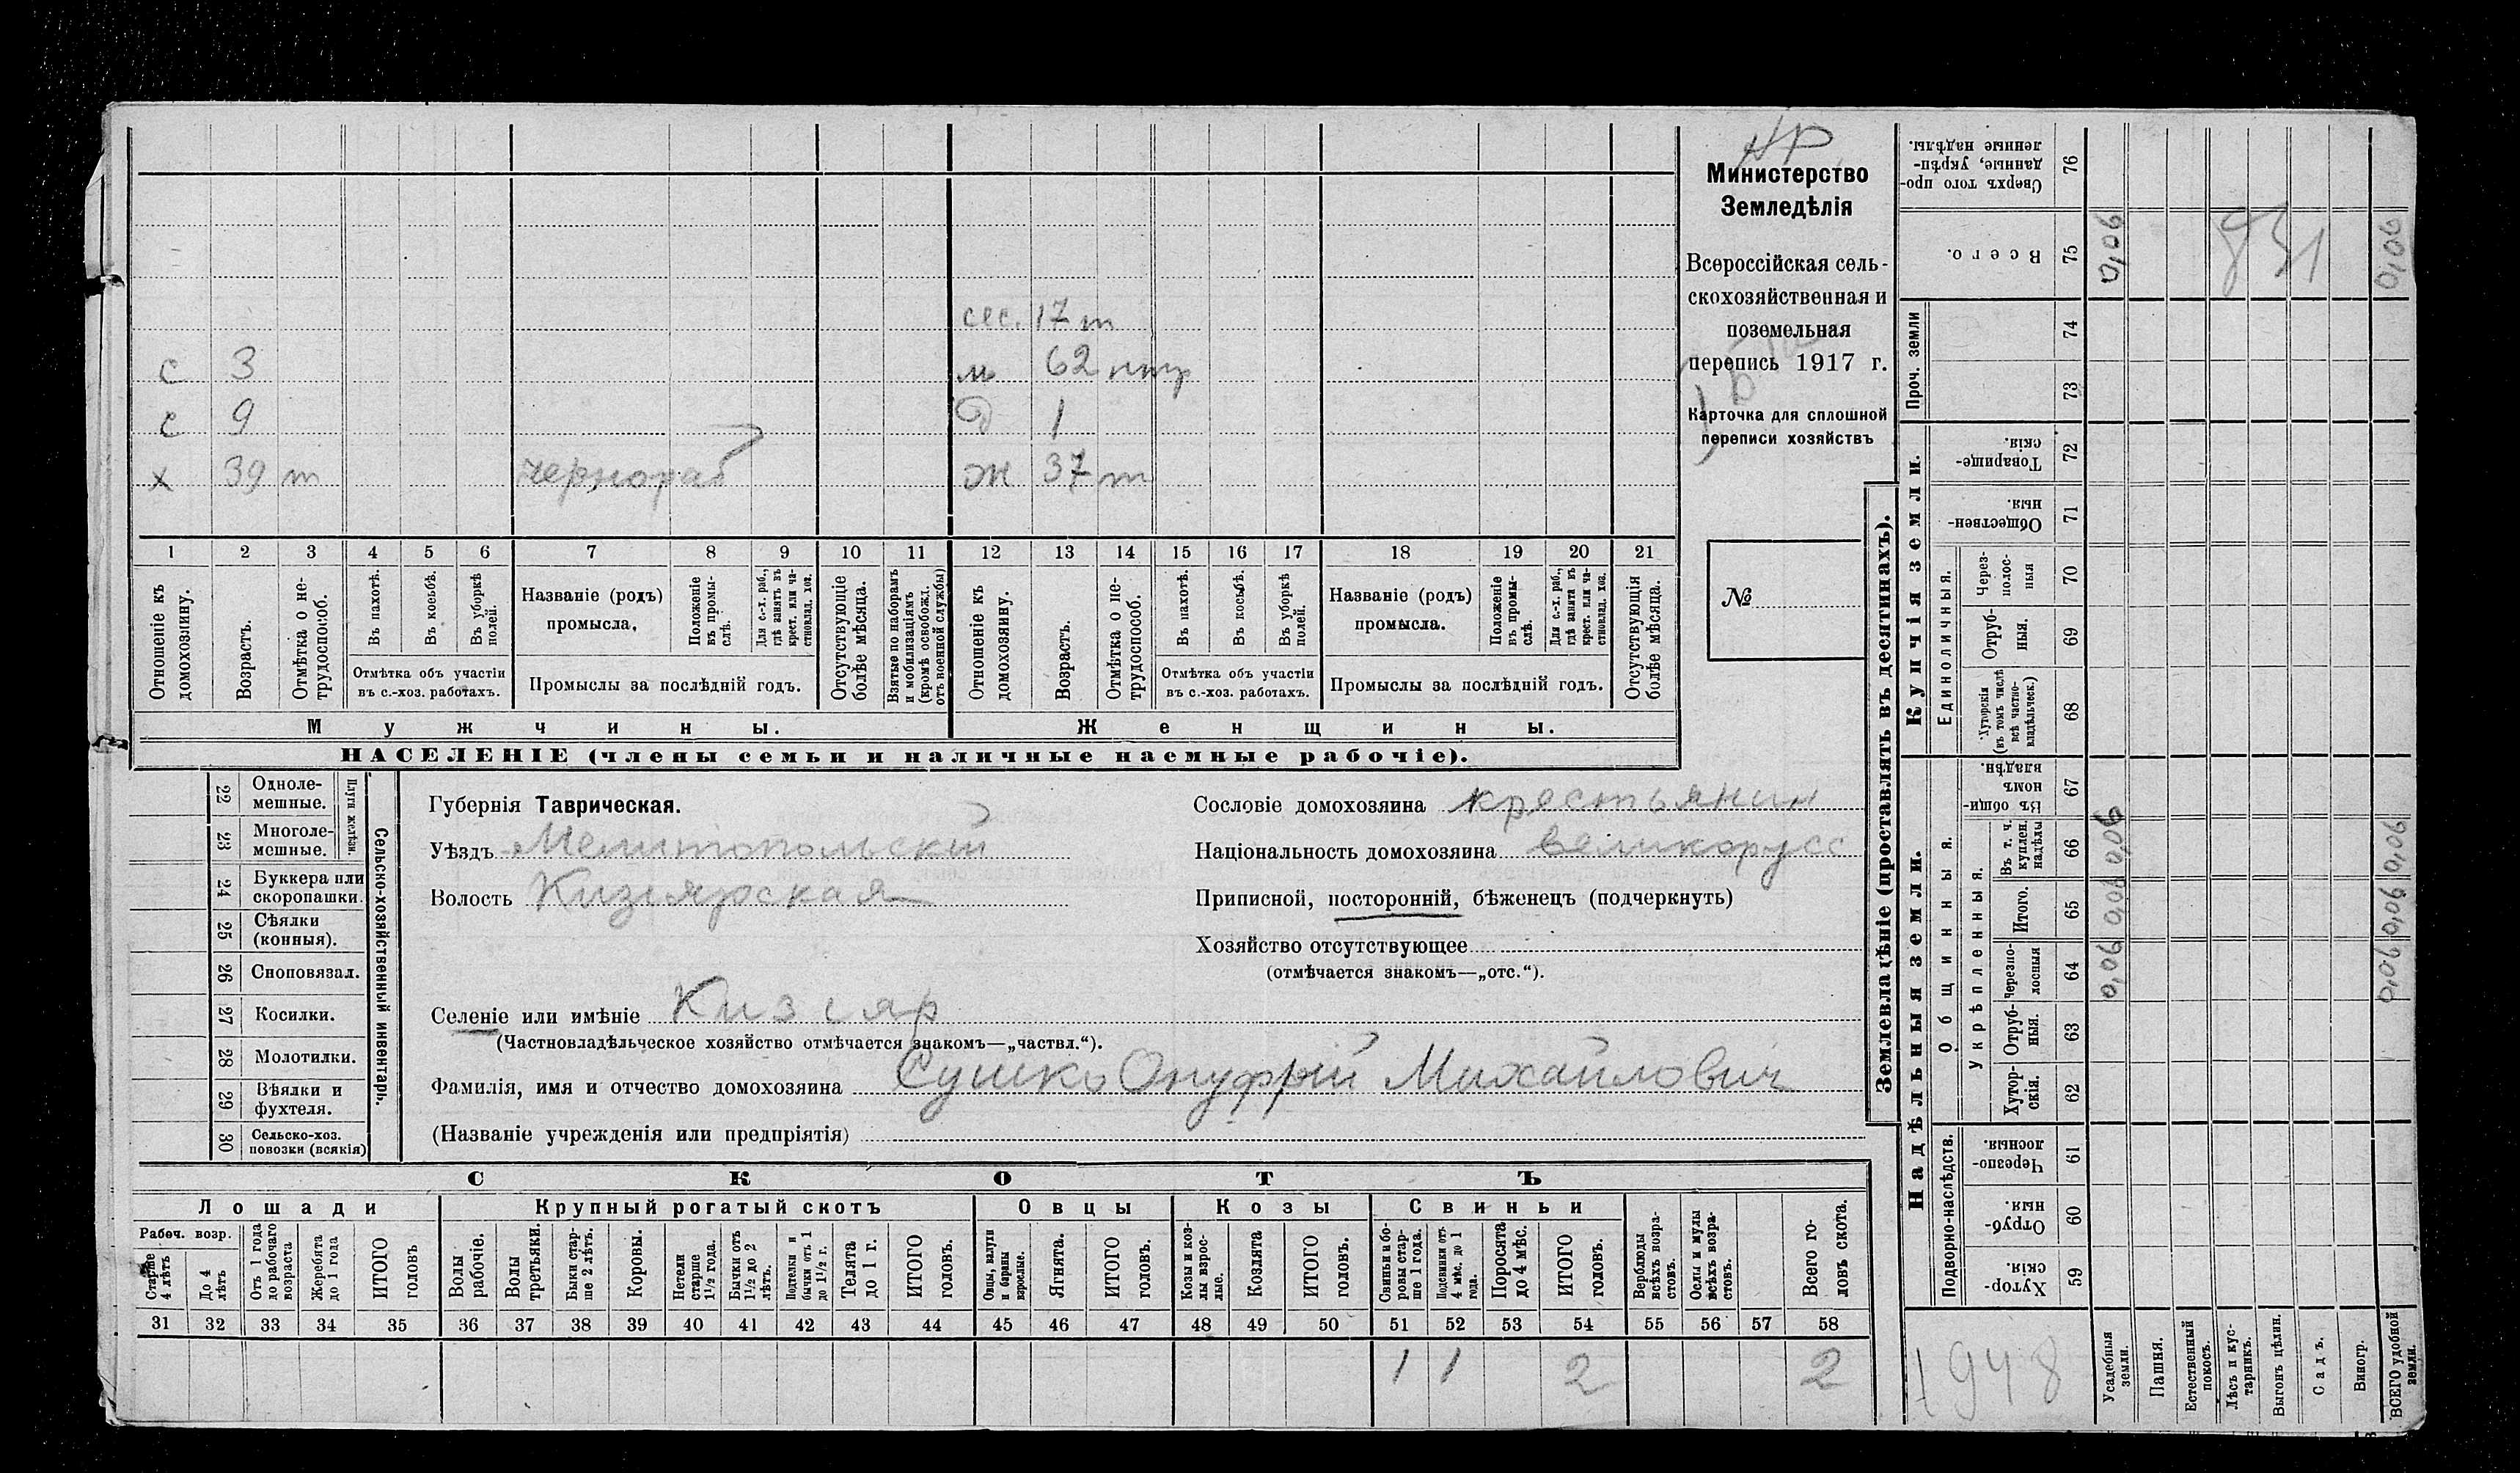 НР
Министерство
Земледѣлія
Всероссійская сель-
скохозяйственная и
поземельная
перепись 1917 г.
Карточка для сплошной
переписи хозяйствъ
№
сес. 17 т
с 3 м 62 нтр
с 9 д 1
х 39 т чернораб ж 37 т
1 2 3 4 5 6 7 8 9 10 11 12 13 14 15 16 17 18 19 20 21
Отношеніе къ домохозяину.
Возрастъ.
Отмѣтка о не-трудоспособ.
Въ пахотѣ.
Въ косьбѣ.
Въ уборкѣ полей.
Отмѣтка объ участіи
въ с.-хоз. работахъ.
Названіе (родъ)
промысла.
Положеніе въ промы-слѣ.
Для с.-х. раб., гдѣ занятъ въ крест. или ча-стновлад. хоз.
Промыслы за послѣдній годъ.
Отсутствующіе болѣе мѣсяца.
Взятые по наборамъ и мобилизаціямъ (кромѣ освобожд. отъ военной службы)
Отношеніе къ домохозяину.
Возрастъ.
Отмѣтка о не-трудоспособ.
Въ пахотѣ.
Въ косьбѣ.
Въ уборкѣ полей.
Отмѣтка объ участіи
въ с.-хоз. работахъ.
Названіе (родъ)
промысла.
Положеніе въ промы-слѣ.
Для с.-х. раб., гдѣ занята въ крест. или ча-стновлад. хоз.
Промыслы за послѣдній годъ.
Отсутствующія болѣе мѣсяца.
Мужчины. Женщины.
НАСЕЛЕНІЕ (члены семьи и наличные наемные рабочіе).
22 Одноле-мешные.
23 Многоле-мешные.
Плуги желѣзн.
24 Буккера или скоропашки.
25 Сѣялки (конныя).
26 Сноповязал.
27 Косилки.
28 Молотилки.
29 Вѣялки и фухтеля.
30 Сельско-хоз. повозки (всякія)
Сельско-хозяйственный инвентарь.
Губернія Таврическая.
Уѣздъ Мелитопольскій
Волость Кизіярская
Сословіе домохозяина крестьянин
Національность домохозяина великорусс
Приписной, посторонній, бѣженецъ (подчеркнуть)
Хозяйство отсутствующее
(отмѣчается знакомъ—„отс.“).
Селеніе или имѣніе Кизіяр
(Частновладѣльческое хозяйство отмѣчается знакомъ—„частвл.“).
Фамилія, имя и отчество домохозяина Сушко Онуфрій Михайлович
(Названіе учрежденія или предпріятія)
СКОТЪ
Лошади Крупный рогатый скотъ Овцы Козы Свиньи
Рабоч. возр.
Старше 4 лѣтъ
До 4 лѣтъ
Отъ 1 года до рабочаго возраста
Жеребята до 1 года
ИТОГО головъ
Волы рабочіе.
Волы третьяки.
Быки стар-ше 2 лѣтъ.
Коровы.
Нетели старше 1½ года.
Бычки отъ 1½ до 2 лѣтъ.
Подтелки и бычки отъ 1 до 1½ г.
Телята до 1 г.
ИТОГО головъ.
Овцы, валухи и бараны взрослые.
Ягнята.
ИТОГО головъ.
Козы и коз-лы взрос-лые.
Козлята
ИТОГО головъ.
Свиньи и бо-ровы стар-ше 1 года.
Подсвинки отъ 4 мѣс. до 1 года.
Поросята до 4 мѣс.
ИТОГО головъ.
Верблюды всѣхъ возра-стовъ.
Ослы и мулы всѣхъ возра-стовъ.
Всего го-ловъ скота.
31 32 33 34 35 36 37 38 39 40 41 42 43 44 45 46 47 48 49 50 51 52 53 54 55 56 57 58
1 1 2 2
Землевладѣніе (проставлять въ десятинахъ).
Сверхъ того про-данные, укрѣп-ленные надѣлы. 76
Всего. 75 0,06 0,06
Проч. земли 74
73
Купчія земли.
Товарище-скія. 72
Обществен-ныя. 71
Единоличныя.
Через-полос-ныя 70
Отруб-ныя. 69
Хуторскія (въ томъ числѣ всѣ частно-владѣльческ.) 68
Надѣльныя земли.
Общинныя.
Въ общин-номъ владѣн. 67
Укрѣпленныя.
Въ т. ч. куплен. надѣлы 66 0,06 0,06
Итого. 65 0,06 0,06
Черезпо-лосныя 64 0,06 0,06
Отруб-ныя. 63
Хутор-скія. 62
Подворно-наслѣдств.
Черезпо-лосныя. 61
Отруб-ныя. 60
Хутор-скія. 59
1948
Усадебныя земли.
Пашня.
Естественный покосъ.
Лѣсъ и кус-тарникъ.
Выгонъ цѣлин.
Садъ.
Виногр.
ВСЕГО удобной земли.